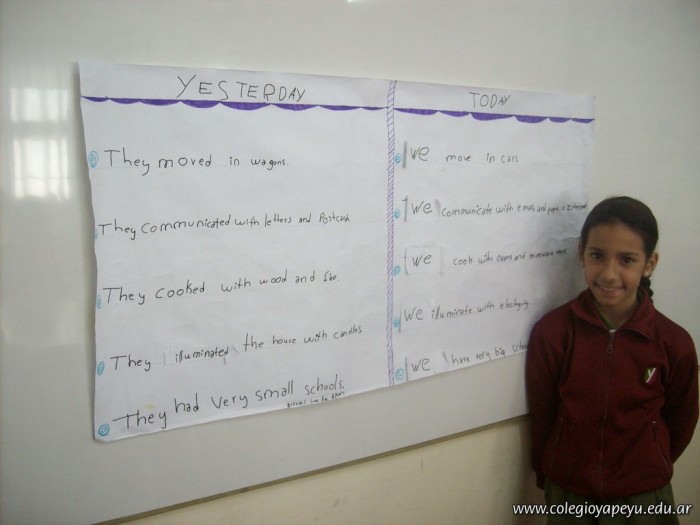 YESTERDAY
They moved in wagons.
They communicated with letters and postcards
They cooked with wood and fire.
They illuminated the house with candles
They had very small schools.
TODAY
we move in cars
we communicate with e mails and
we cook with ovens and microwave
we illuminate with electricity
we have very big
www.colegioyapeyu.edu.ar